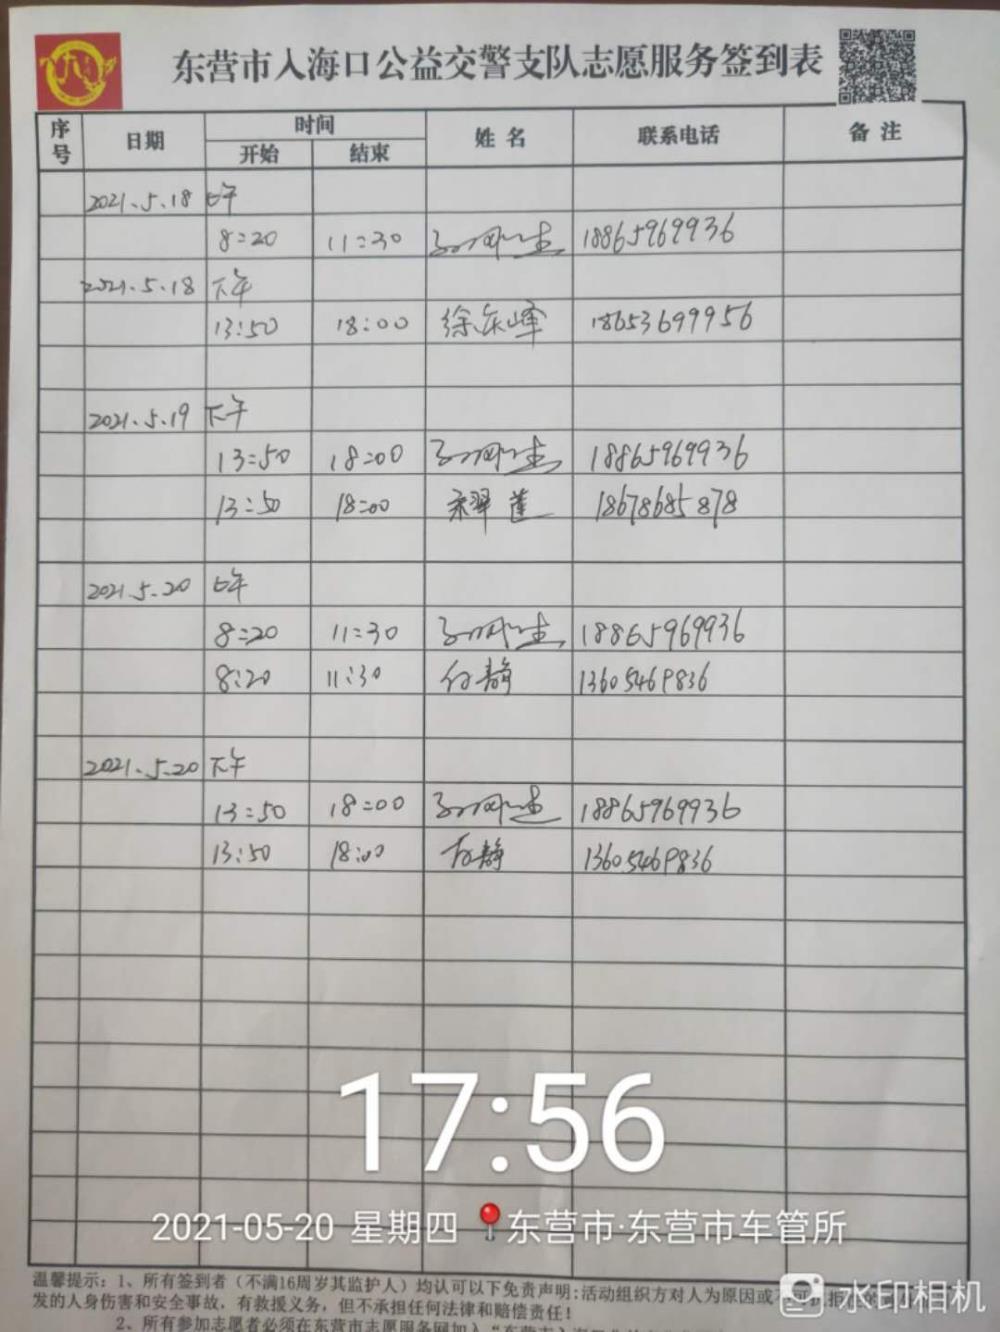 东营市入海口公益交警支队志愿服务签到表
序号 日期 时间 姓名 联系电话 备注
开始 结束
2021.5.18 上午
8:20 11:30 18865969936
2021.5.18 下午
13:50 18:00 徐东峰 18653699956
2021.5.19 下午
13:50 18:00 18865969936
13:50 18:00 18678685878
2021.5.20 上午
8:20 11:30 18865969936
8:20 11:30 付静 13605469836
2021.5.20 下午
13:50 18:00 18865969936
13:50 18:00 付静 13605469836
17:56
2021-05-20 星期四 东营市·东营市车管所
温馨提示：1、所有签到者（不满16周岁其监护人）均认可以下免责声明：活动组织方对人为原因或
发的人身伤害和安全事故，有救援义务，但不承担任何法律和赔偿责任！
水印相机
2、所有参加志愿者必须在东营市志愿服务网加入“东营市入海口